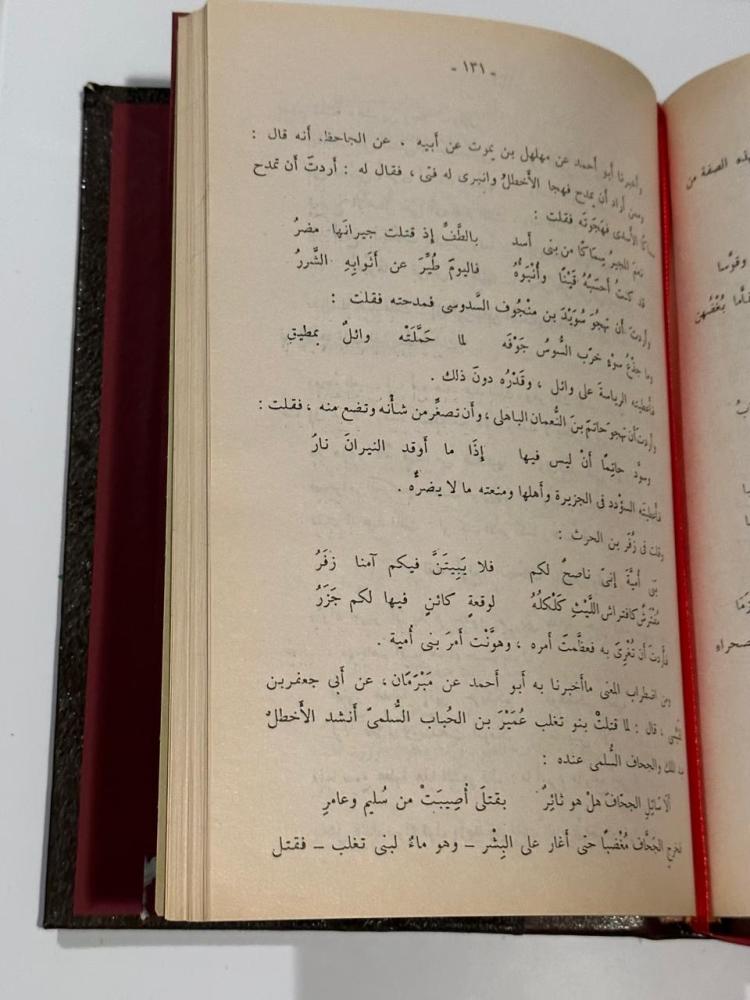 - ١٣١ -
وأخبرنا أبو أحمد عن مهلهل بن يموت عن أبيه ، عن الجاحظ. أنه قال :
ومن أراد أن يمدح فهجا الأخطلُ وانبرى له فتى ، فقال له : أردتَ أن تمدح
سماكًا الأسدى فهجوتَه فقلت :
نعمَ المجيرُ سِماكًا من بنى أسد بالطَّفِّ إذ قتلت جيرانَها مضرُ
قد كنتُ أحسَبُهُ قَيْنًا وأُنْبَؤهُ فاليومَ طُيِّرَ عن أثوابِهِ الشَّررُ
وأردتَ أن تهجُوَ سُوَيْدَ بن منْجُوف السَّدوسى فمدحته فقلت :
وما جذْعُ سوْءٍ خرّب السُّوسُ جَوْفَه لما حَمَّلَتْه وائلٌ بمطيقِ
فأعطيته الرياسةَ على وائل ، وقَدْرُه دونَ ذلك .
وأردتَ أن تهجو حاتمَ بنَ النُّعمان الباهلى ، وأن تصغِّر من شأنْه وتضع منه ، فقلت :
وسوّد حاتِمًا أنْ ليس فيها إِذَا ما أوقد النيرانَ نارُ
فأعطيتَه السؤْدد فى الجزيرة وأهلها ومنعته ما لا يضرهُ .
وقلت فى زُفَر بن الحرث :
بَنى أُميَّة إِنىّ ناصحٌ لكم فلا يَبِيتَنَّ فيكم آمنا زفَرُ
مُفْتَرِشٌ كافتراش اللَّيْثِ كَلْكلُهُ لوقعةٍ كائنٍ فيها لكم جَزَرُ
فأردتَ أن تُغْرِىَ به فعظَّمتَ أمره ، وهوَّنْت أمرَ بنى أمية .
ومن اضطراب المعنى ما أخبرنا به أبو أحمد عن مَبْرَمَان ، عن أبى جعفر بن
، قال : لما قتلتْ بنو تغلب عُمَيْرَ بن الحُباب السُّلمىّ أنشد الأخطلُ
الملك والجحاف السُّلمى عنده :
ألا سائِلِ الجحّافَ هلْ هو ثائِرٌ بقتلَى أُصِيبَتْ من سُليم وعامرِ
فخرج الجَحَّاف مُغْضَبًا حتى أغار على البِشْر ــ وهو ماءٌ لبنى تغلب ــ فقتل
هذه الصفة من
وقوْسا
بُغْضُهن
صحراء